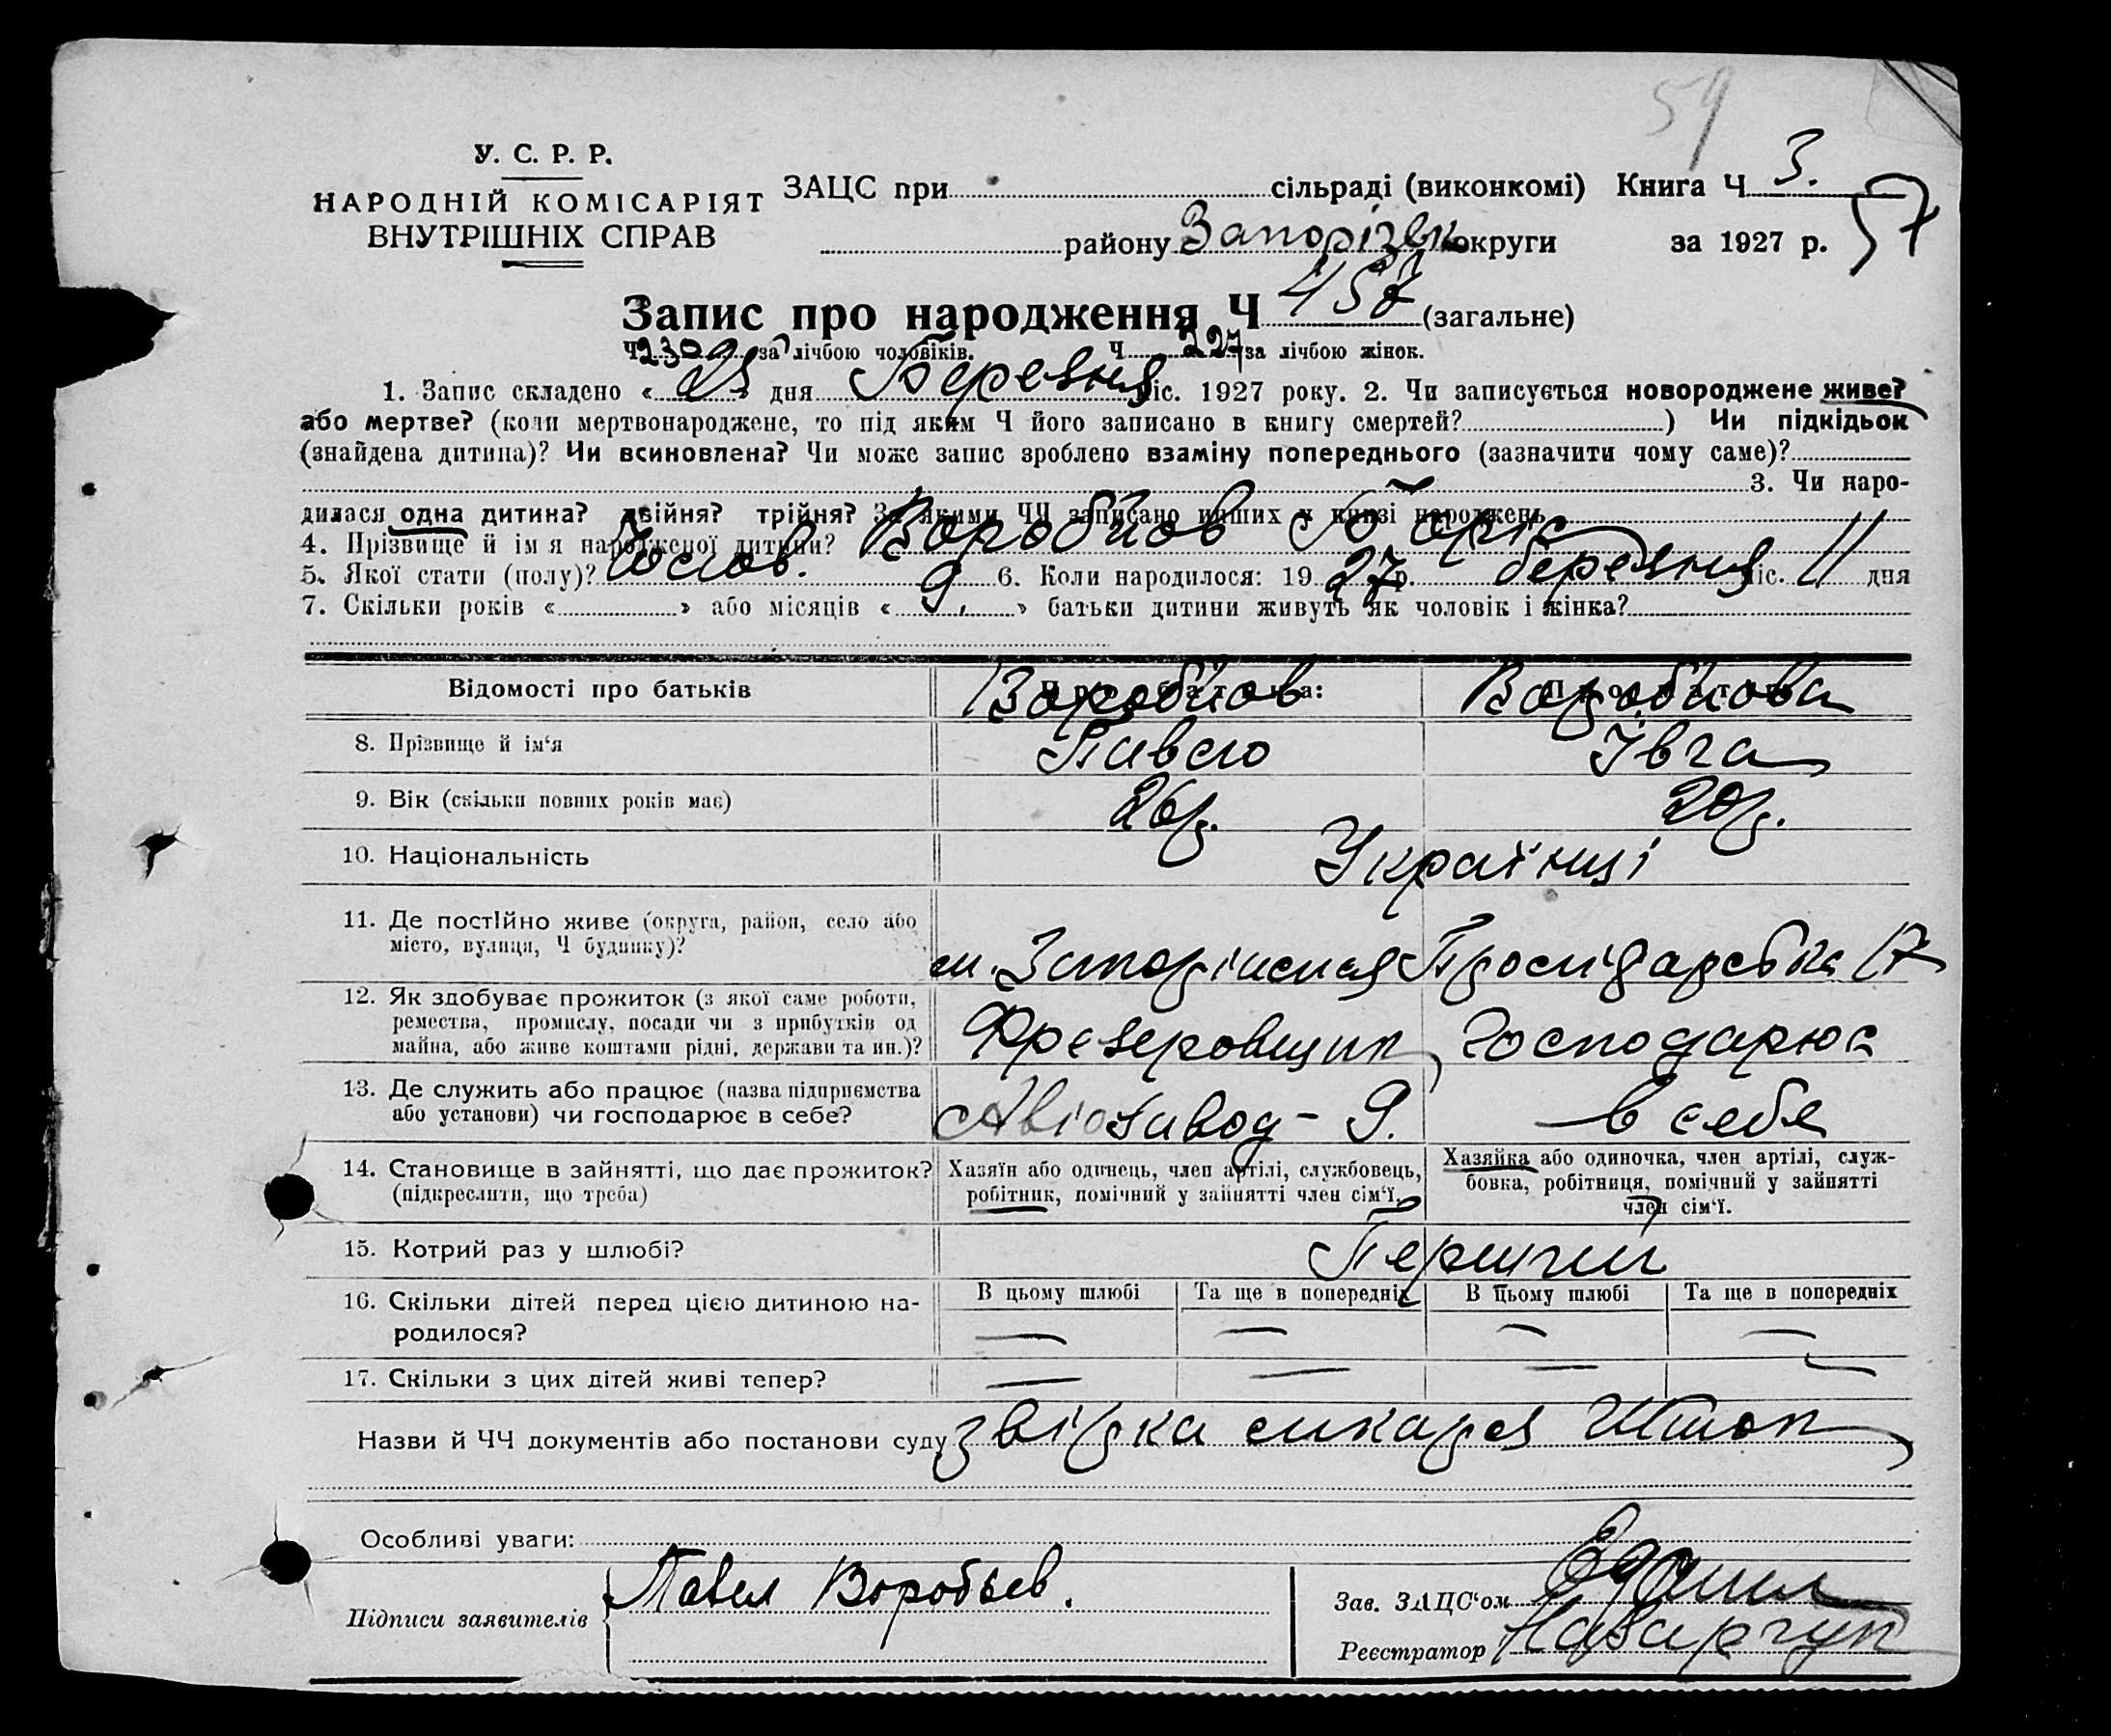 59
У. С. Р. Р.
НАРОДНІЙ КОМІСАРІЯТ
ВНУТРІШНІХ СПРАВ
ЗАЦС при сільраді (виконкомі) Книга Ч 3.
району Запорізьк округи за 1927 р. 57
Запис про народження Ч 457 (загальне)
Ч 230 за лічбою чоловіків. Ч 227 за лічбою жінок.
1. Запис складено « » дня Березня міс. 1927 року. 2. Чи записується новороджене живе?
або мертве? (коли мертвонароджене, то під яким Ч його записано в книгу смертей? ) Чи підкідьок
(знайдена дитина)? Чи всиновлена? Чи може запис зроблено взаміну попереднього (зазначити чому саме)?
3. Чи наро-
дилася одна дитина? двійня? трійня? За якими ЧЧ записано инших у книзі народжень
4. Прізвище й ім я народженої дитини? Воробйов Боріс
5. Якої стати (полу)? Чолов. 6. Коли народилося: 19 27 р. березня міс. 11 дня
7. Скільки років « » або місяців « 9. » батьки дитини живуть як чоловік і жінка?
Відомості про батьків Воробйов Воробйова
8. Прізвище й ім‘я Павло Ївга
9. Вік (скільки повних років має) 26р. 20р.
10. Національність Українці
11. Де постійно живе (округа, район, село або
місто, вулиця, Ч будинку)? м. 17
12. Як здобуває прожиток (з якої саме роботи,
ремества, промислу, посади чи з прибутків од
майна, або живе коштами рідні, держави та ин.)? Фрезеровщик Господарює
13. Де служить або працює (назва підприємства
або установи) чи господарює в себе? Авіозавод - 9. в себе
14. Становище в зайнятті, що дає прожиток?
(підкреслити, що треба)
Хазяїн або одинець, член артілі, службовець,
робітник, помічний у зайнятті член сім‘ї.
Хазяйка або одиночка, член артілі, служ-
бовка, робітниця, помічний у зайнятті
член сім‘ї.
15. Котрий раз у шлюбі? Перший
16. Скільки дітей перед цією дитиною на-
родилося?
В цьому шлюбі Та ще в попередніх В цьому шлюбі Та ще в попередніх
— — — —
17. Скільки з цих дітей живі тепер? — — — —
Назви й ЧЧ документів або постанови суду
Особливі уваги:
Підписи заявителів Павел Воробьев.
Зав. ЗАЦС‘ом
Реєстратор